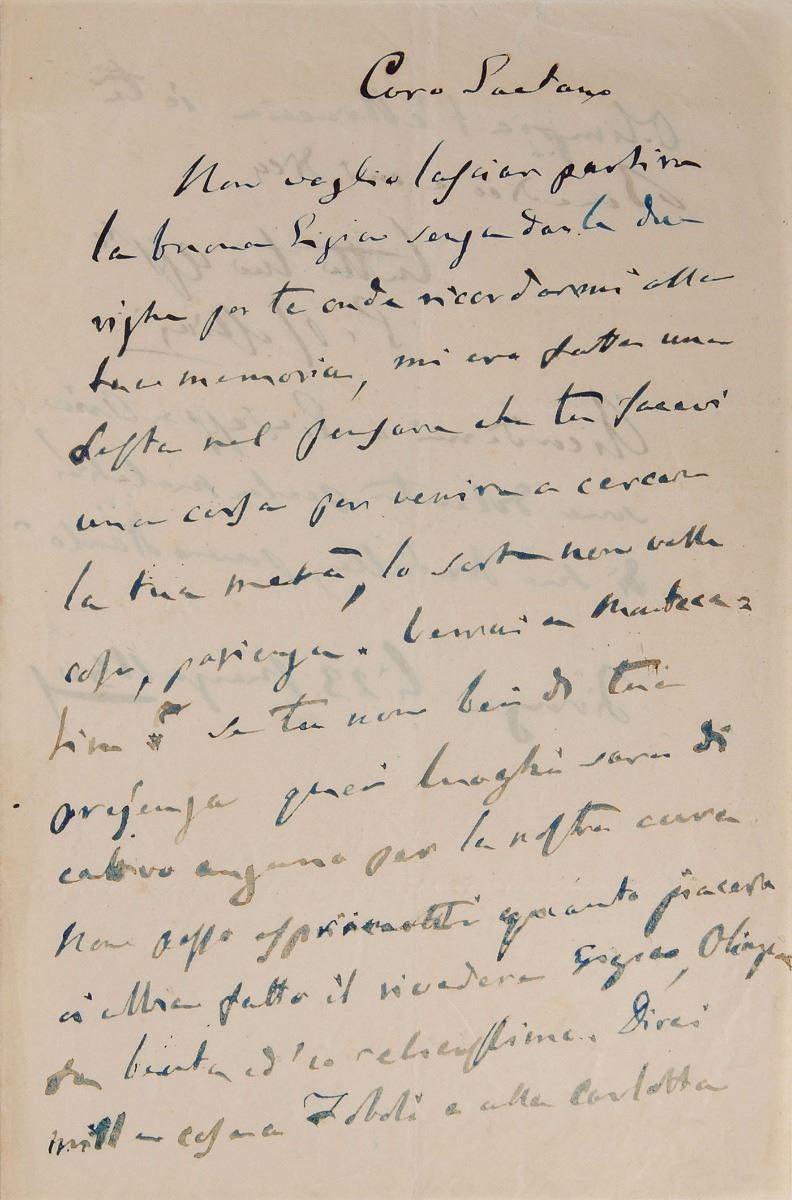 Caro Gaetano
Non voglio lasciar partire
la buona Gigia senza darle due
righe per te onde ricordarmi alla
tua memoria, mi era fatta una
festa nel pensare che tu facevi
una corsa per venire a cercare
la tua metà, la sorte non volle
così, pazienza. Verrai a Monteca=
tini? se tu non bei di tua
presenza quei luoghi sarà di
cattivo augurio per la nostra cura
Non posso esprimerti quanto piacere
ci abbia fatto il rivedere Gigia,
beata ed io Dirai
mille cose a Zoboli e alla Carlotta